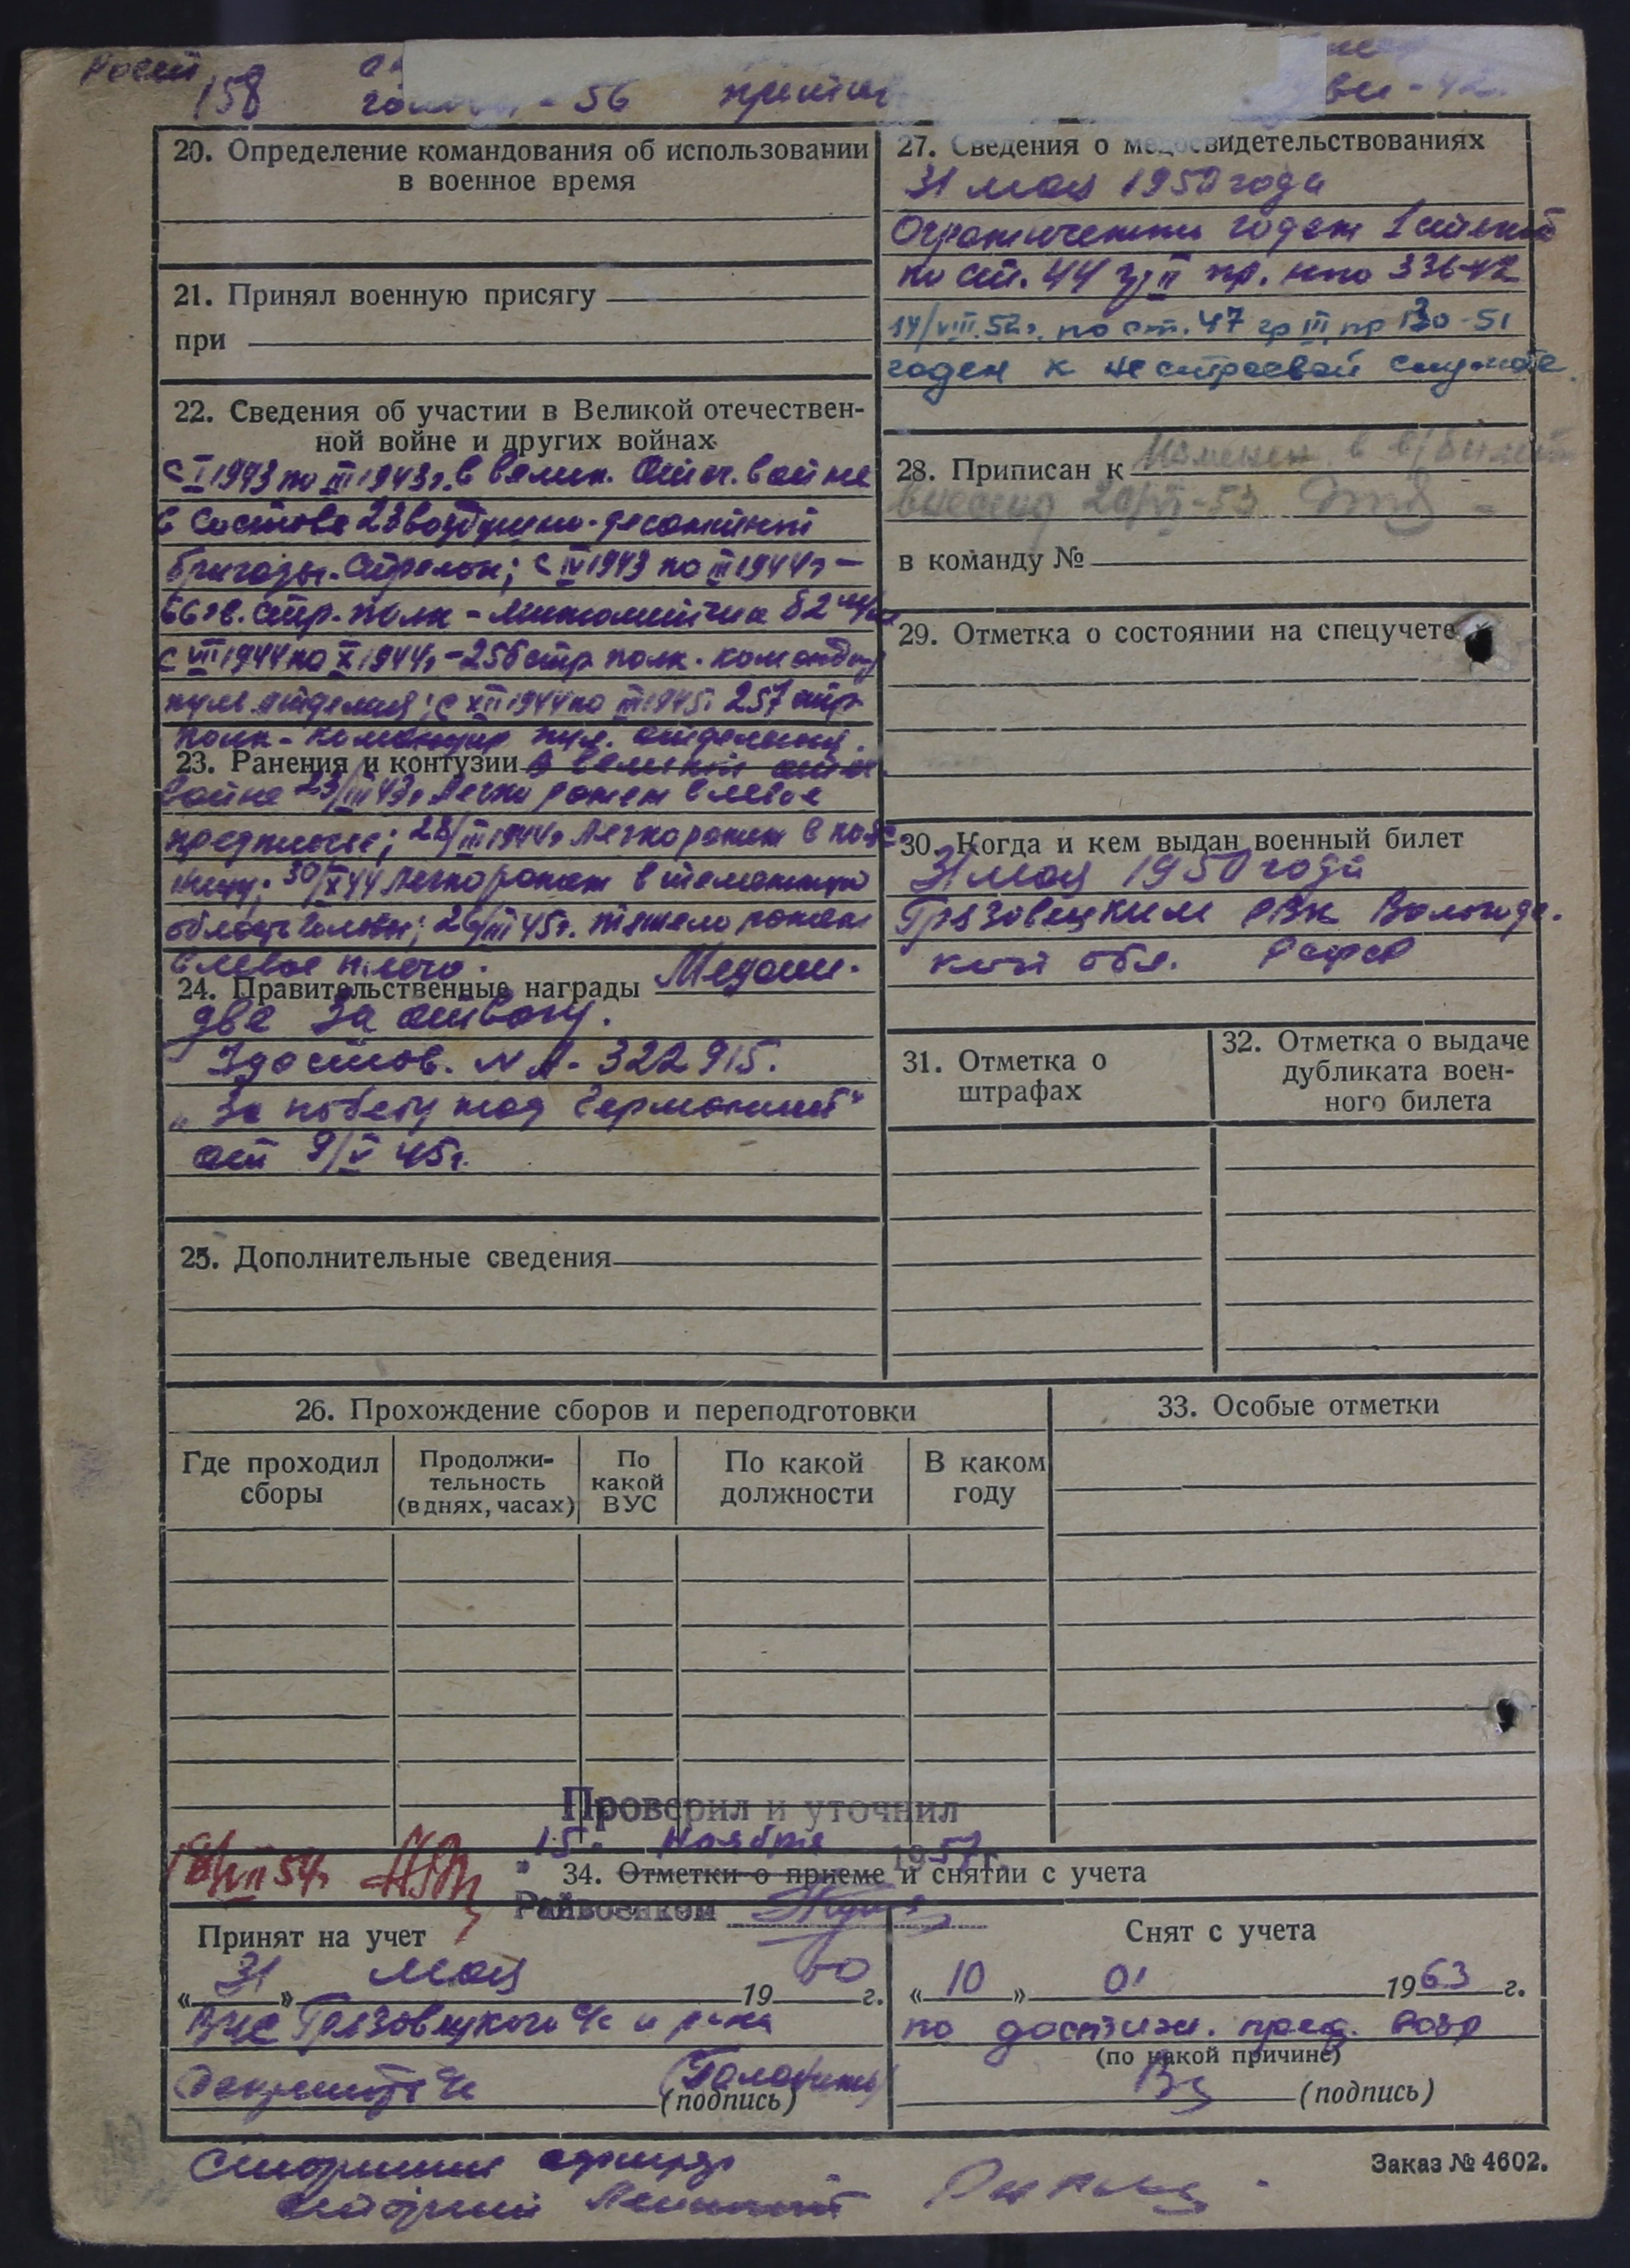 Рост 158 голова - 56
20. Определение командования об использовании
в военное время
21. Принял военную присягу
при
22. Сведения об участии в Великой отечествен-
ной войне и других войнах
с I 1943 по III 1943г. в велик. Отеч. войне
в составе 23 воздушно-десантной
бригады. Стрелок; с IV 1943 по III 1944г —
66 гв. стр. полк - минометчик 82 м/м
с VII 1944 по X 1944г - 256 стр полк. командир
пул. отделения; с XII 1944 по III 1945г 257 стр
полк - командир пул. отделения.
23. Ранения и контузии в великой отеч
войне 23/III 43г. Легко ранен в левое
предплечье; 28/III 1944г Легко ранен в пояс
ницу; 30/X 44 Легко ранен в теменную
область головы; 26/III 45г. тяжело ранен
в левое плечо.
24. Правительственные награды Медали.
две За отвагу.
Удостов. № А- 322915.
„За победу над Германией“
от 9/V 45г.
25. Дополнительные сведения
27. Сведения о медосвидетельствованиях
31 мая 1950 года
Ограниченно годен 1 степени
по ст. 44 гр II пр. нко 336-42
14/VIII.52г. по ст. 47 гр III пр 130-51
годен к нестроевой службе.
28. Приписан к
в команду №
29. Отметка о состоянии на спецучете
30. Когда и кем выдан военный билет
31 мая 1950 года
Грязовецким РВК Вологодс.
кой обл. РСФСР
31. Отметка о
штрафах
32. Отметка о выдаче
дубликата воен-
ного билета
26. Прохождение сборов и переподготовки
Где проходил
сборы
Продолжи-
тельность
(в днях, часах)
По
какой
ВУС
По какой
должности
В каком
году
33. Особые отметки
Проверил и уточнил
"15" ноября 1957 г.
34. Отметки о приеме и снятии с учета
Райвоенком
Принят на учет
«31» мая 1950 г.
Грязовецкого
(подпись)
Снят с учета
«10» 01 1963 г.
по достиж. пред. возр
(по какой причине)
(подпись)
Заказ № 4602.